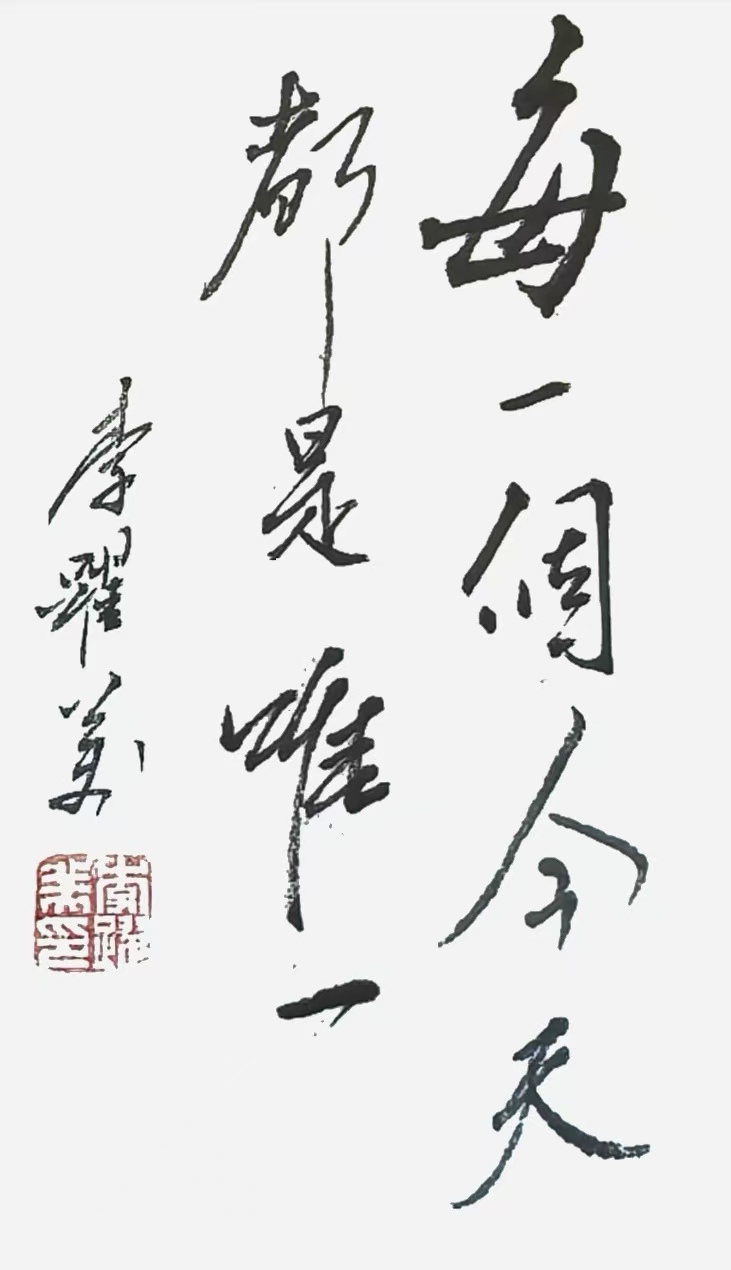 每一個今天
都是唯一
李